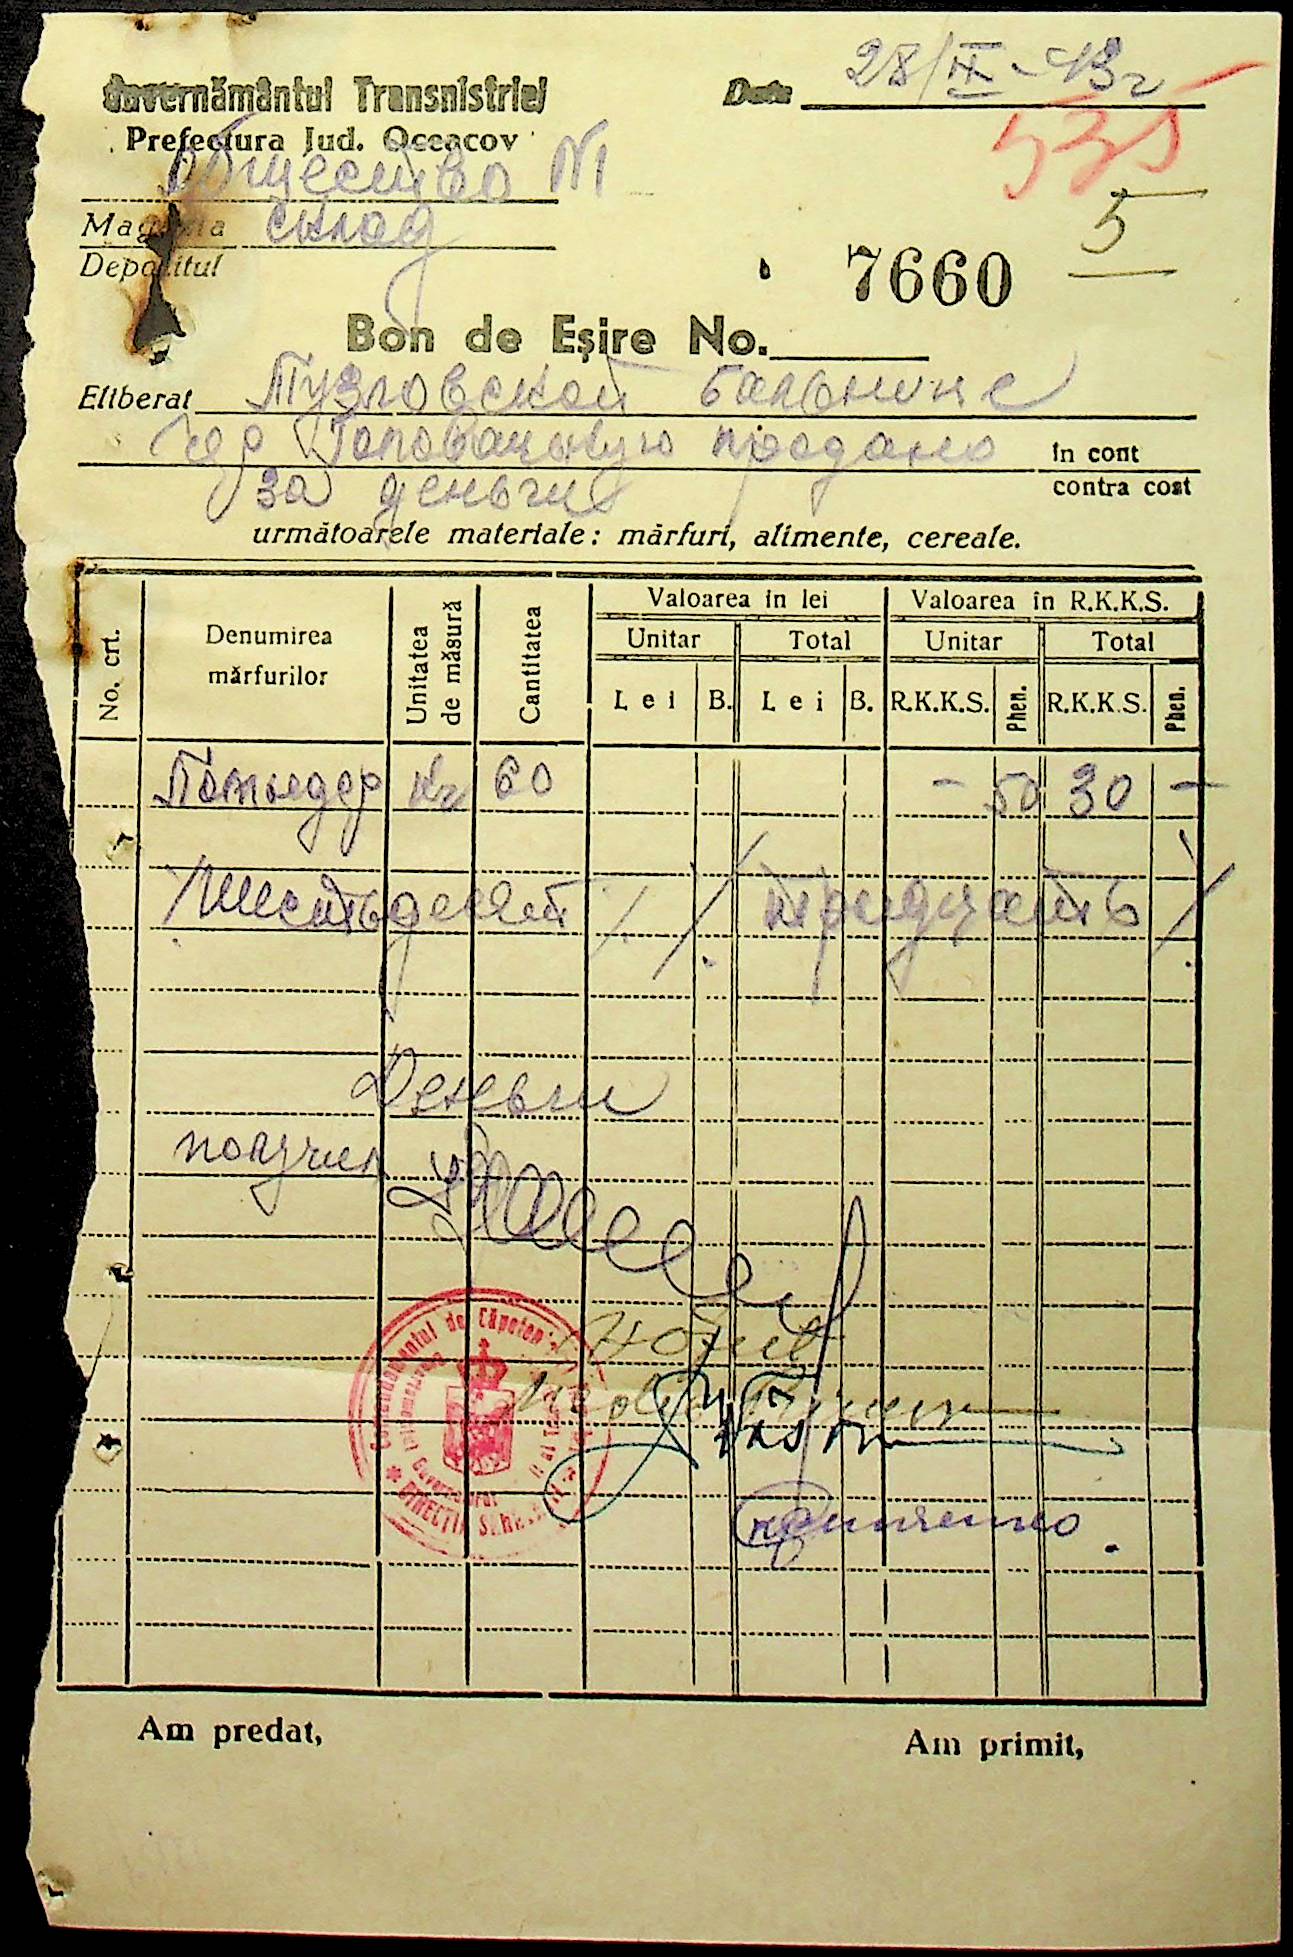 Guvernământul Transnistriei
Data 28/IX-43г
Prefectura Jud. Oceacov
535
Общество №1
Magazia склад
5
Depozitul
7660
Bon de Eşire No.
Eliberat Тузловской больнице
продано in cont
за деньги contra cost
următoarele materiale: mărfuri, alimente, cereale.
No. crt. Denumirea mărfurilor Unitatea de măsură Cantitatea Valoarea in lei Valoarea în R.K.K.S.
Unitar Total Unitar Total
Lei B. Lei B. R.K.K.S. Phen. R.K.K.S. Phen.
Помидор кг 60 - 50 30 -
Шестьдесят тридцать
Деньги
получил
Am predat, Am primit,